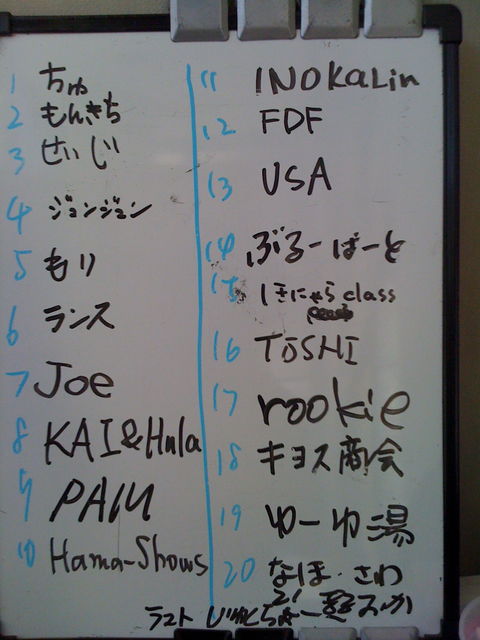 1 ちゅ
2 もんきち
3 せいじ
4 ジョンジョン
5 もり
6 ランス
7 Joe
8 KAI&Hula
9 PAIU
10 Hama-Shows
11 INOKALin
12 FDF
13 USA
14 ぶるーばーど
15 class
16 TOSHI
17 rookie
18 キヨス商会
19 ゆーゆ湯
20 なほ・さわ
21
ラスト